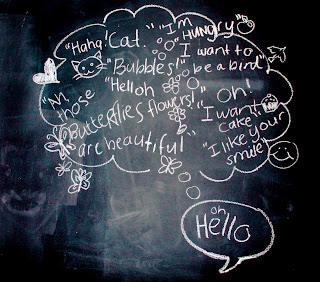 "Haha! Cat."
"I'm HUNGRY"
"I want to be a bird"
"Bubbles!"
"Helloh flowers!"
"Ah, those butterflies are beautiful"
"Oh! I want cake."
"I like your smile"
oh,
Hello